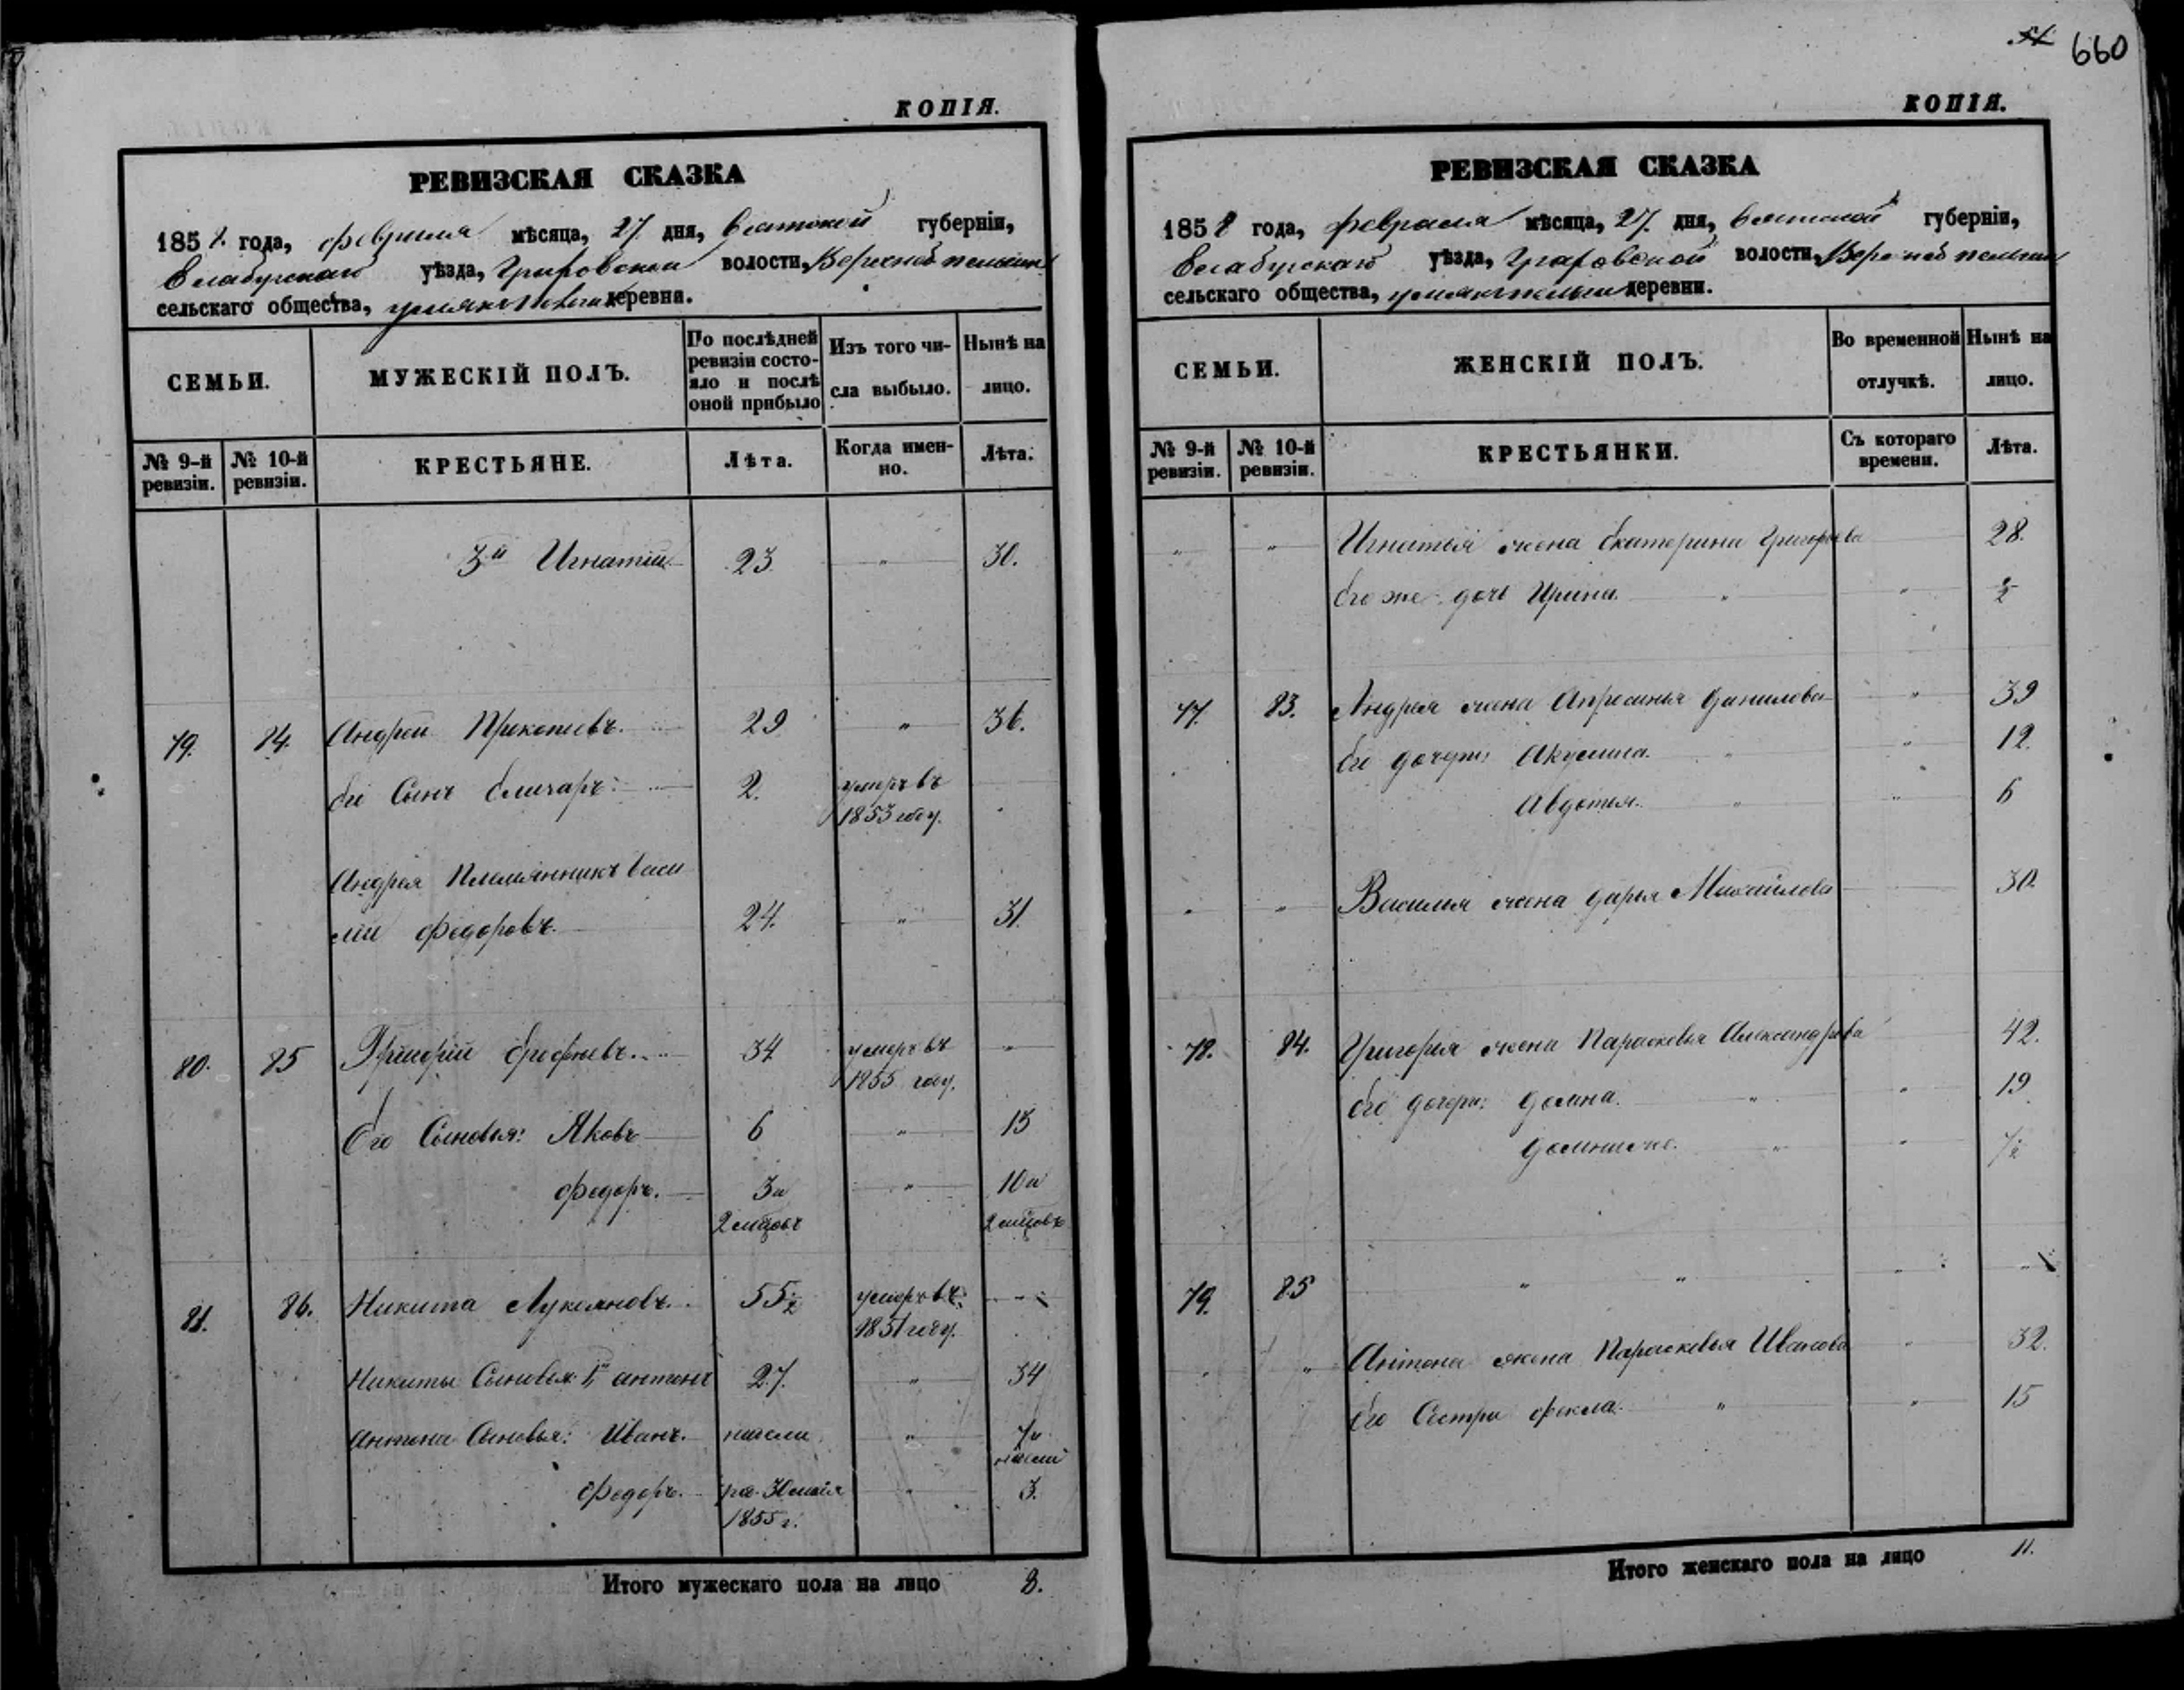 660
КОПІЯ.
РЕВИЗСКАЯ СКАЗКА
1858 года, февраля мѣсяца, 27 дня, Вятской губерніи,
Елабургскаго уѣзда, Граховской волости,
сельскаго общества, деревни.
СЕМЬИ.
МУЖЕСКІЙ ПОЛЪ.
По послѣдней
ревизіи состо-
яло и послѣ
оной прибыло
Изъ того чи-
сла выбыло.
Нынѣ на
лицо.
№ 9-й
ревизіи.
№ 10-й
ревизіи.
КРЕСТЬЯНЕ.
Лѣта.
Когда имен-
но.
Лѣта.
3й Игнатій 23 " 30.
79. 84. Андрей Прокопьевъ. 29 " 36.
Его Сынъ Елизаръ 2. умеръ въ
1853 году.
Андрея Племянникъ Васи
лій Федоровъ. 24. " 31.
80. 85 Григорій Ерофѣевъ. 34 умеръ въ "
1855 году.
Его Сыновья: Яковъ 6 " 13
Федоръ. 3и " 10и
2 мцовъ 2 мцовъ
81. 86. Никита Лукояновъ. 55½ умеръ въ
1851 году.
Никиты Сыновья: 1й Антонъ 27. " 34
Антона Сыновья: Иванъ. " 7и
Федоръ. ро. " 3.
1855 г.
Итого мужескаго пола на лицо 8.
КОПІЯ.
РЕВИЗСКАЯ СКАЗКА
1858 года, февраля мѣсяца, 27. дня, Вятской губерніи,
Елабургскаго уѣзда, Граховской волости,
сельскаго общества, деревни.
СЕМЬИ.
ЖЕНСКІЙ ПОЛЪ.
Во временной
отлучкѣ.
Нынѣ на
лицо.
№ 9-й
ревизіи.
№ 10-й
ревизіи.
КРЕСТЬЯНКИ.
Съ котораго
времени.
Лѣта.
" " Игнатья жена Екатерина Григорьева 28.
Его же дочь Ирина. " " ½
77. 83. Андрея жена Апросинья Данилова " 39
Его дочери: Акулина. " " 12.
Авдотья. " " 6
" " Василья жена Дарья Михайлова 30.
78. 84. Григорья жена Парасковья Александрова 42.
Его дочери: Домна. " " 19
" " ½
79. 85 " " " "
" " Антона жена Парасковья Иванова " 32.
Его Сестра Фекла. " " 15
Итого женскаго пола на лицо 11.